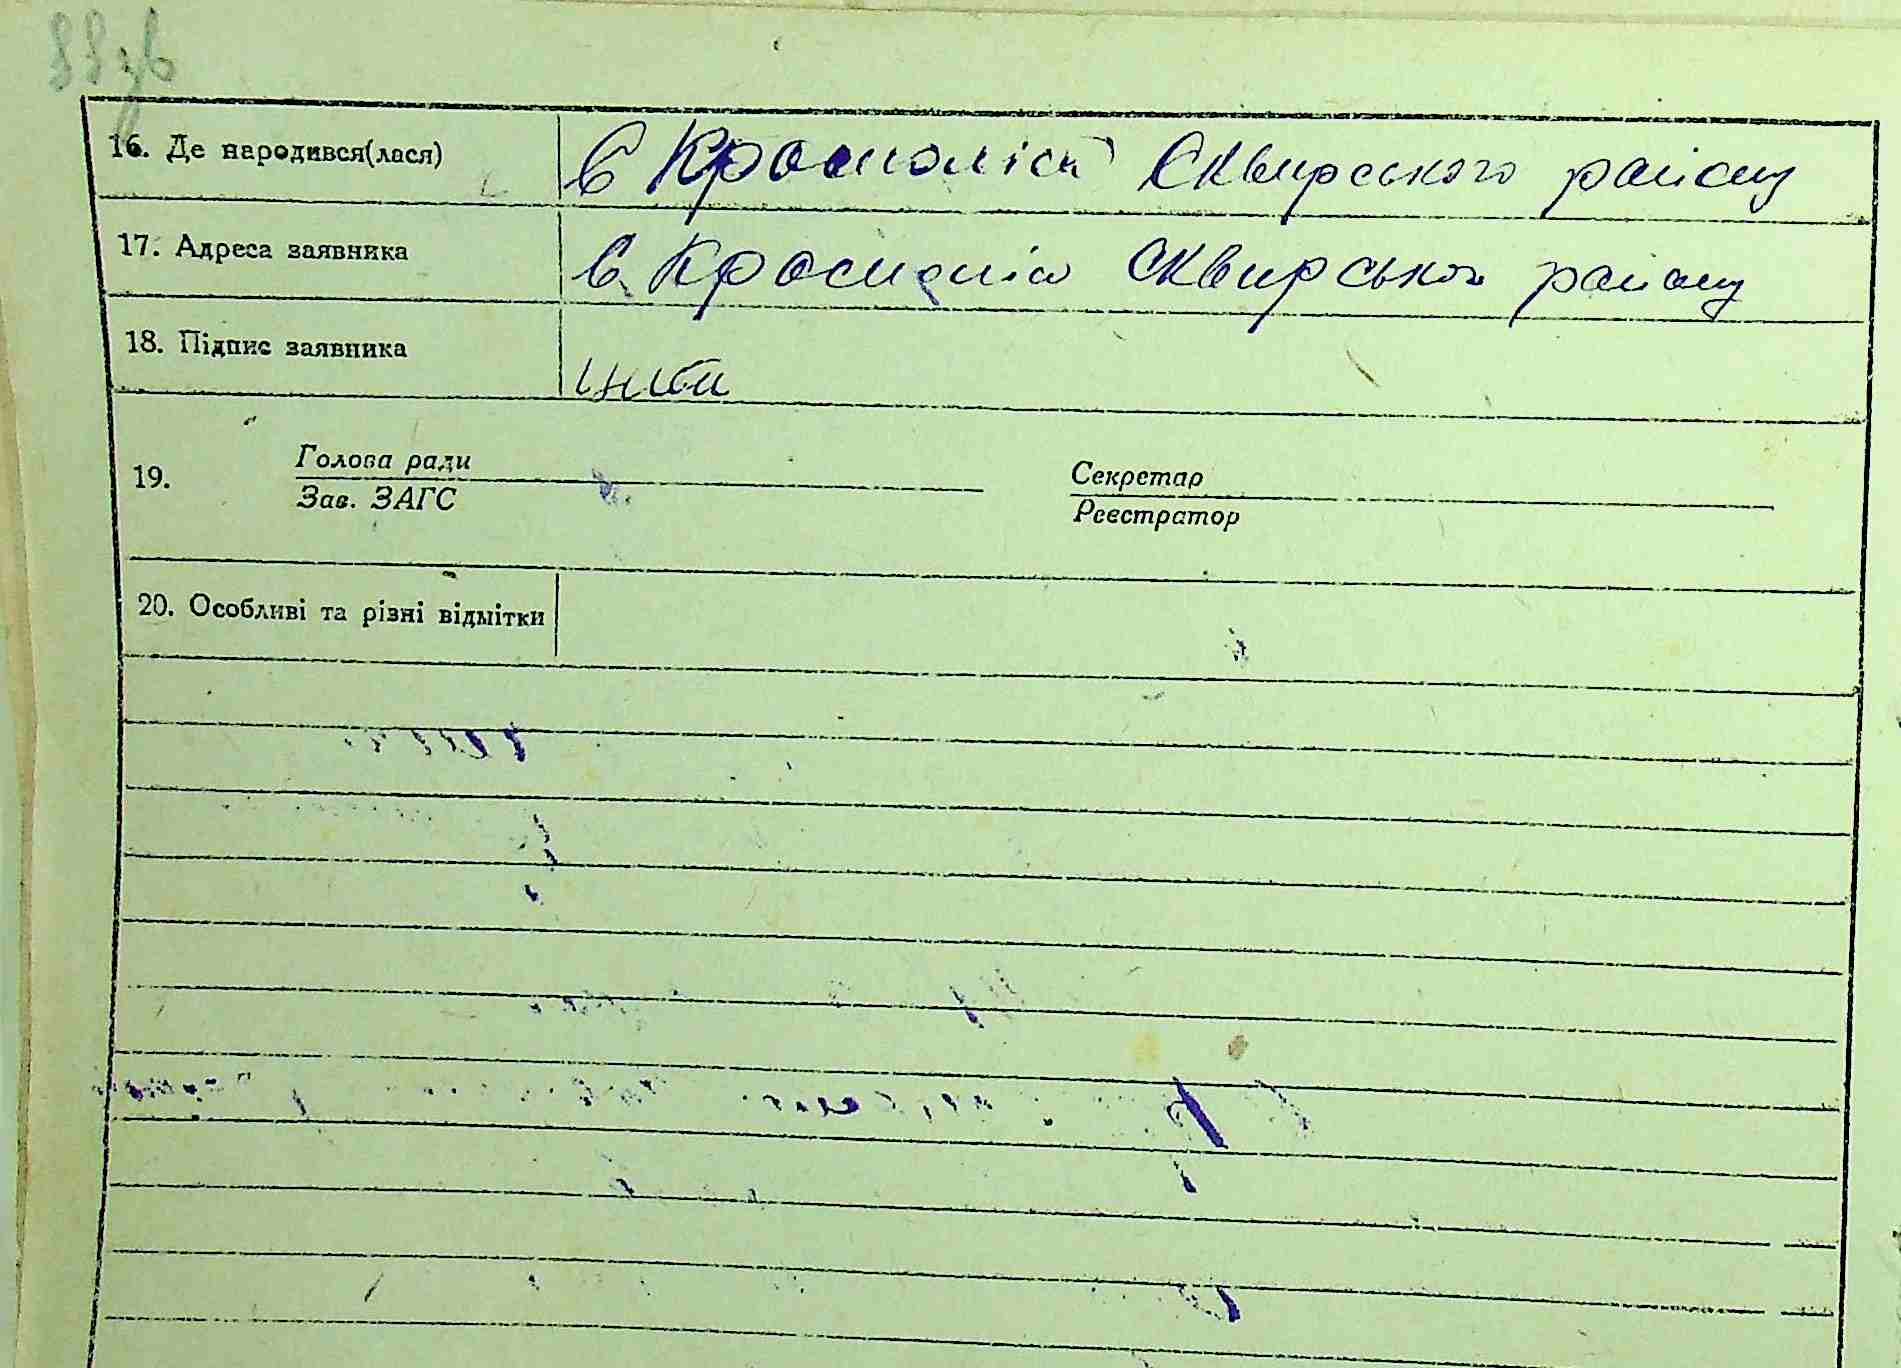 88зв
16. Де народився(лася) с Красноліси Сквирського району
17. Адреса заявника с. Красноліси Сквирського району
18. Підпис заявника
19. Голова ради Секретар
Зав. ЗАГС Реєстратор
20. Особливі та різні відмітки